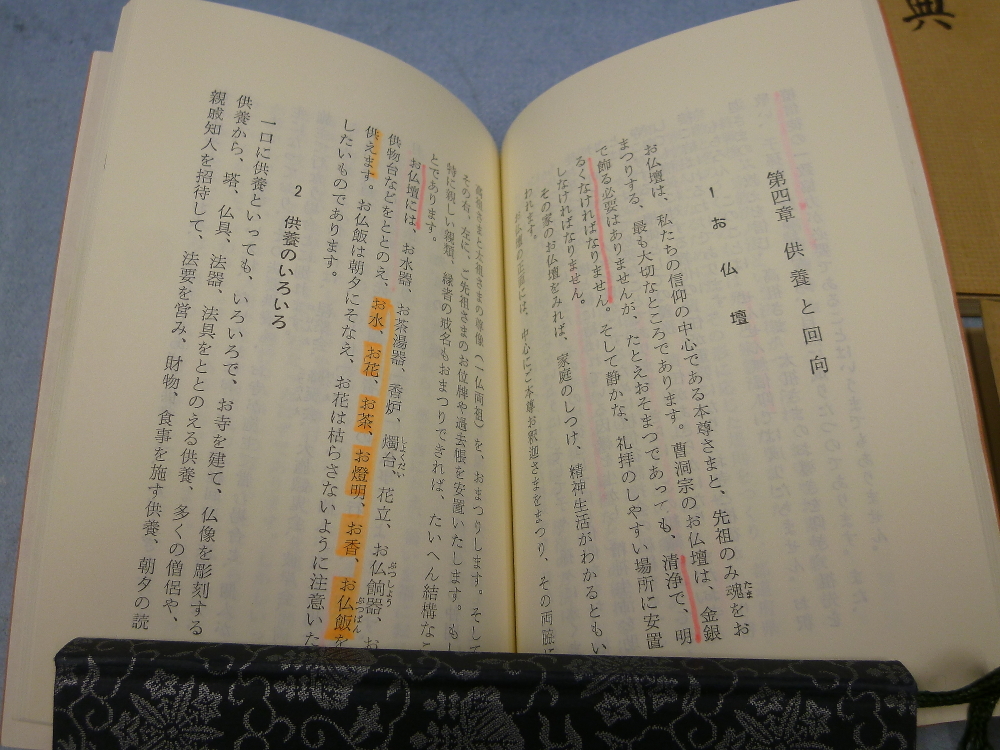 典
第四章　供養と回向
1　お仏壇
お仏壇は、私たちの信仰の中心である本尊さまと、先祖のみ魂をお
たま
まつりする、最も大切なところであります。曹洞宗のお仏壇は、金銀
で飾る必要はありませんが、たとえおそまつであっても、清浄で、明
るくなければなりません。そして静かな、礼拝のしやすい場所に安置
しなければなりません。
その家のお仏壇をみれば、家庭のしつけ、精神生活がわかるともい
われます。
お仏壇の正面には、中心にご本尊お釈迦さまをまつり、その両脇に
高祖さまと太祖さまの尊像（一仏両祖）を、おまつりします。そして
その右、左に、ご先祖さまのお位牌や過去帳を安置いたします。もし
特に親しい親類、縁者の戒名もおまつりできれば、たいへん結構なこ
とであります。
お仏壇には、お水器、お茶湯器、香炉、燭台、花立、お仏餉器、お
しょくだい
ぶっしょう
供物台などをととのえ、お水、お花、お茶、お燈明、お香、お仏飯を
ぶっぱん
供えます。お仏飯は朝夕にそなえ、お花は枯らさないように注意いた
したいものであります。
2　供養のいろいろ
一口に供養といっても、いろいろで、お寺を建て、仏像を彫刻する
供養から、塔、仏具、法器、法具をととのえる供養、多くの僧侶や、
親戚知人を招待して、法要を営み、財物、食事を施す供養、朝夕の読